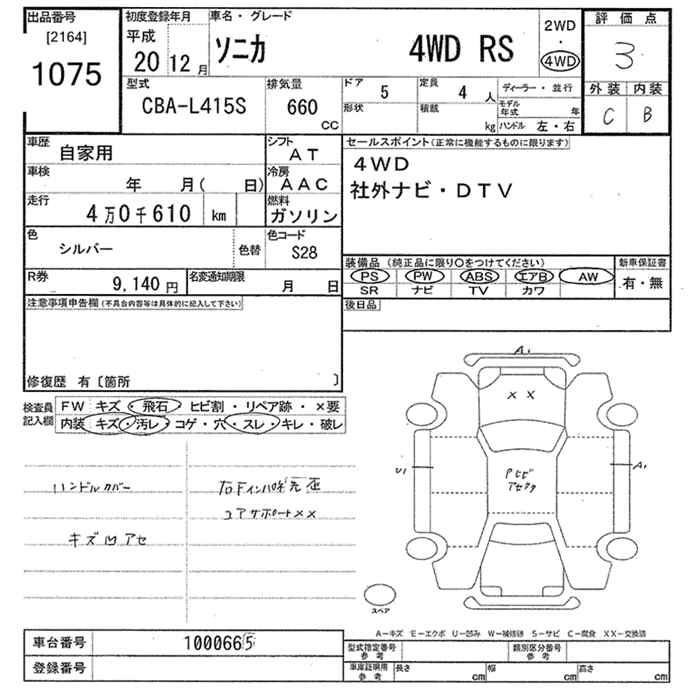 出品番号
[2164]
1075
初度登録年月
平成
20 12月
車名・グレード
ソニカ 4WD RS
2WD
・
4WD
評価点
3
外装 内装
C B
型式
CBA-L415S
排気量
660
CC
ドア 5
形状
定員 4 人
積載 kg
ディーラー・並行
モデル年式 年
ハンドル 左・右
車歴 自家用
車検 年 月( 日)
走行 4万0千610 km
シフト
AT
冷房
AAC
燃料
ガソリン
色 シルバー 色替
色コード
S28
R券 9,140 円
名変通知期限 月 日
セールスポイント(正常に機能するものに限ります)
4WD
社外ナビ・DTV
装備品 (純正品に限り○をつけてください)
PS PW ABS エアB AW
SR ナビ TV カワ
新車保証書
有・無
後日品
注意事項申告欄(不具合内容等は具体的に記入して下さい)
修復歴 有〔箇所 〕
検査員記入欄
FW キズ・飛石・ヒビ割・リペア跡・×要
内装・キズ・汚レ・コゲ・穴・スレ・キレ・破レ
ハンドルカバー
キズ凹アセ
右Fインパネ
コアサポート××
A1
××
U1
A1
スペア
A-キズ E-エクボ U-凹み W-補修跡 S-サビ C-腐食 XX-交換済
車台番号 1000665
登録番号
型式指定番号
参考
類別区分番号
参考
車庫証明用
参考
長さ cm
幅 cm
高さ cm